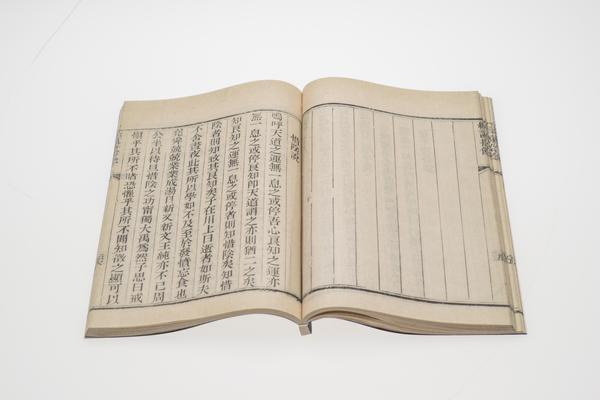 惜陰說
嗚呼天道之運無一息之或停吾心良知之運亦
無一息之或停良知卽天道謂之亦則猶二之矣
知良知之運無一息之或停者則知惜陰矣知惜
陰者則知致其良知矣子在川上曰逝者如斯夫
不舍晝夜此其所以學如不及至於發憤忘食也
堯舜兢兢業業成湯日新又新文王純亦不已周
公坐以待旦惜陰之功甯獨大禹爲然子思曰戒
愼乎其所不睹恐懼乎其所不聞知微之顯可以